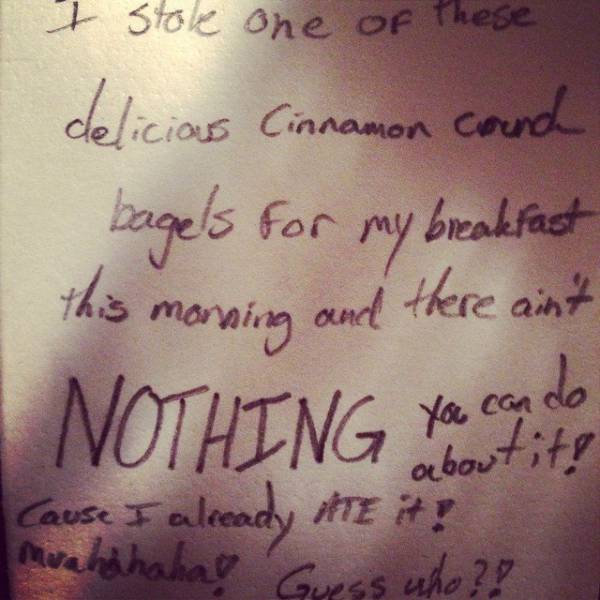 I stole one of these
delicious Cinnamon crunch
bagels for my breakfast
this morning and there ain't
NOTHING you can do
about it!
Cause I already ATE it!
mwahahaha!
Guess who?!